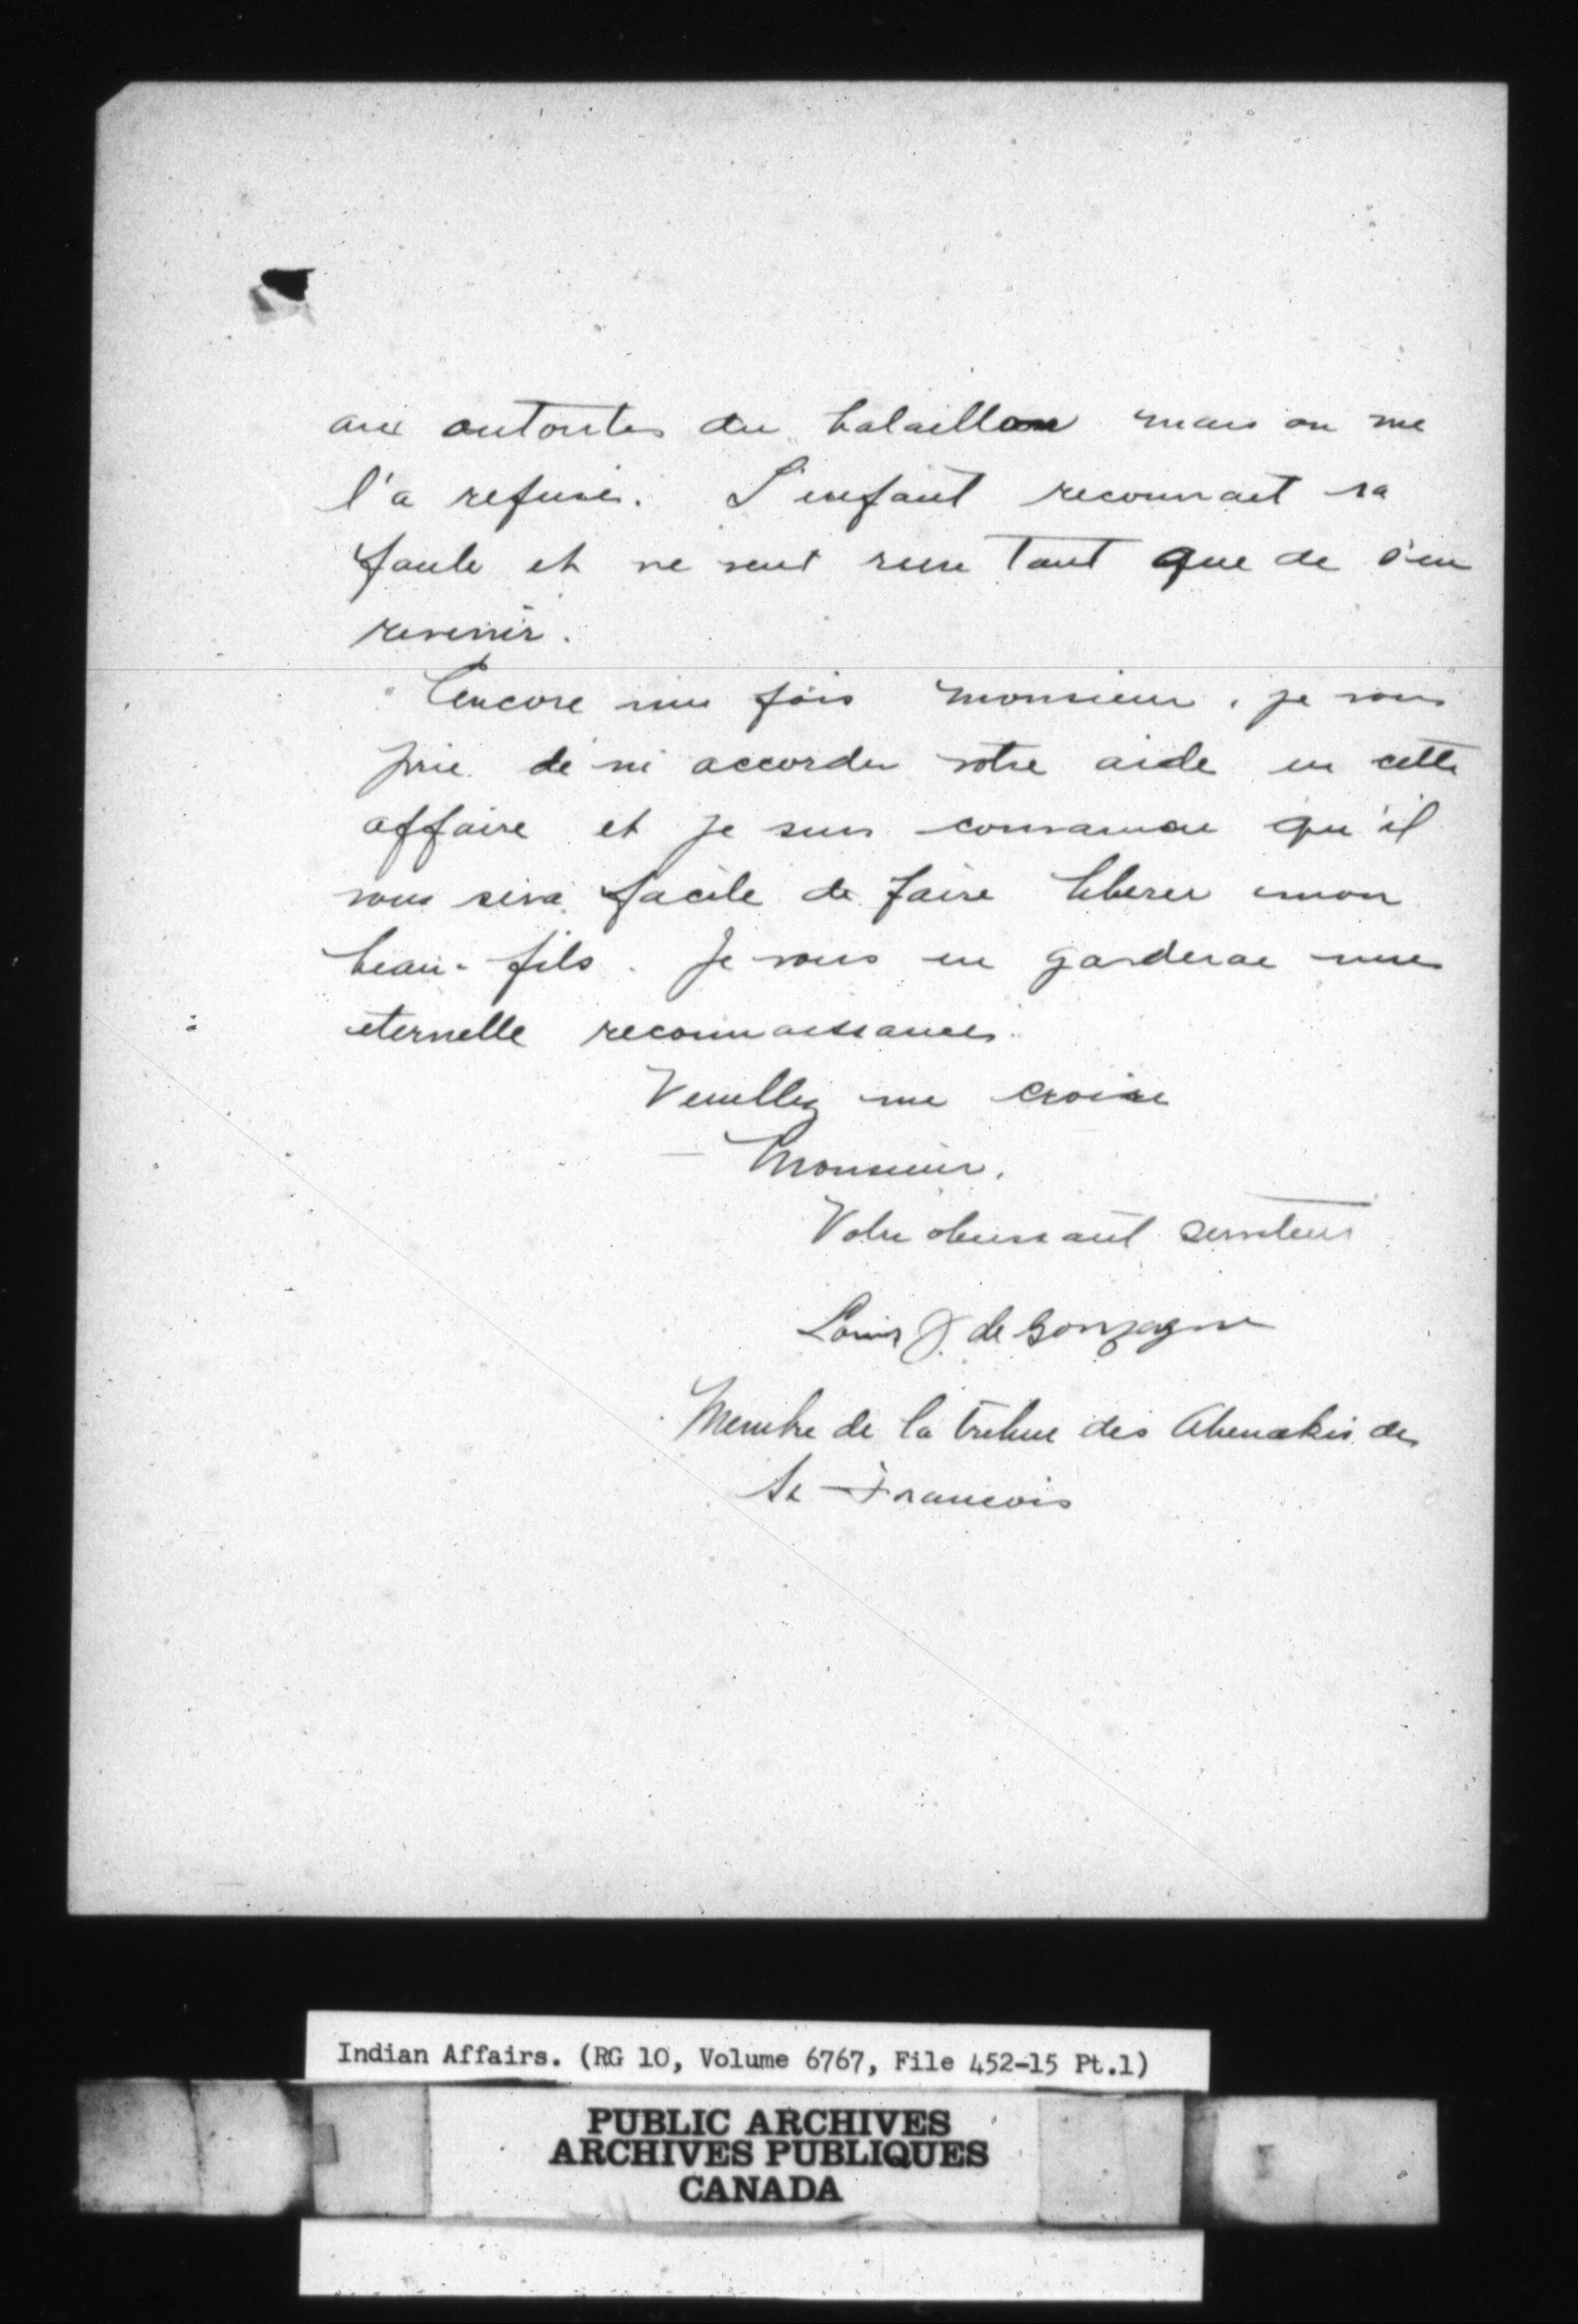 aux autorites du bataillon mais on me
l'a refusé. L'enfant reconnait sa
faute et ne veut rien tant que de s'en
revenir.
Encore une fois Monsieur, je vous
prie de m'accorder votre aide en cette
affaire et je suis convaincu qu'il
vous sera facile de faire liberer mon
beau-fils. Je vous en garderai une
eternelle reconnaissance.
Veuillez me croire
Monsieur,
Votre obeissant serviteur
Louis J. de Gonzague
Membre de la tribue des Abenakis de
St-Francois
Indian Affairs. (RG 10, Volume 6767, File 452-15 Pt.1)
PUBLIC ARCHIVES
ARCHIVES PUBLIQUES
CANADA